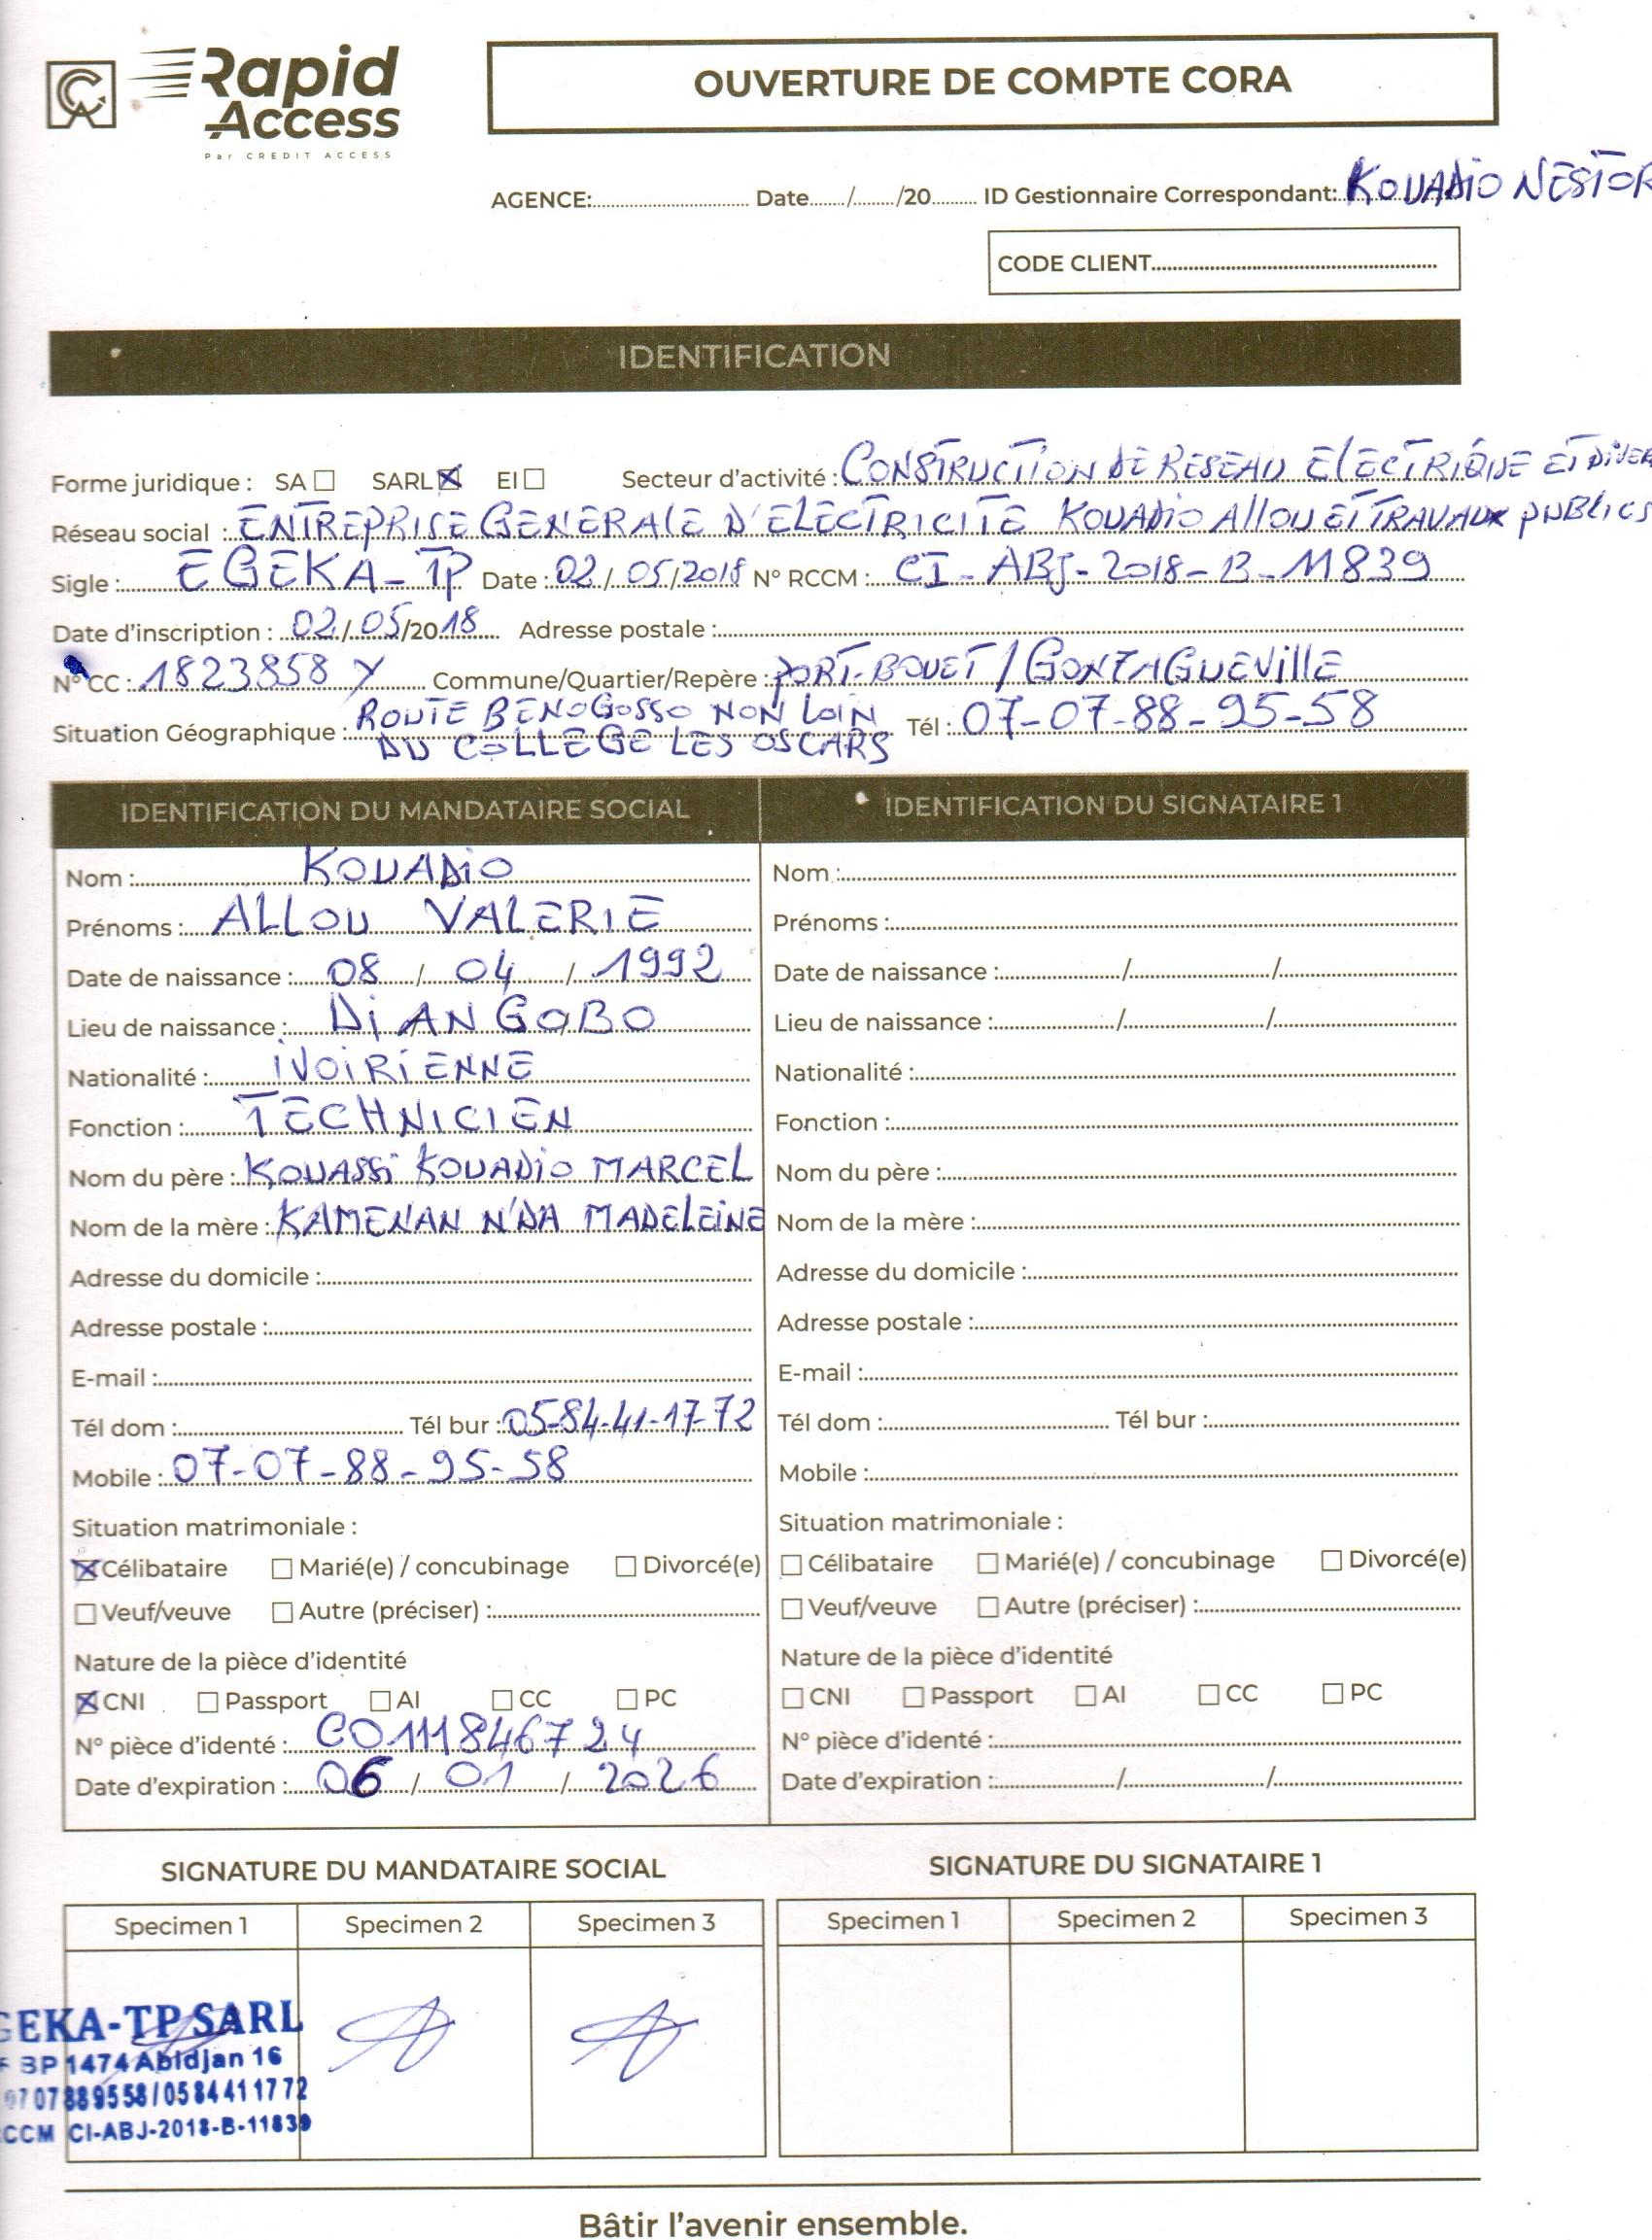 Rapid
Access
Par CREDIT ACCESS
OUVERTURE DE COMPTE CORA
AGENCE:.......... Date....../....../20...... ID Gestionnaire Correspondant: KOUADIO NESTOR
CODE CLIENT..........
IDENTIFICATION
Forme juridique : SA ☐ SARL ☒ EI ☐ Secteur d'activité : CONSTRUCTION DE RESEAU ELECTRIQUE ET DIVER
Réseau social : ENTREPRISE GENERALE D'ELECTRICITE KOUADIO ALLOU ET TRAVAUX PUBLICS
Sigle : EGEKA-TP Date : 02/05/2018 N° RCCM : CI-ABJ-2018-B-11839
Date d'inscription : 02/05/2018 Adresse postale :
N° CC : 1823858 Y Commune/Quartier/Repère : PORT-BOUET/GONZAGUEVILLE
Situation Géographique : ROUTE BENOGOSSO NON LOIN Tél : 07-07-88-95-58
DU COLLEGE LES OSCARS
IDENTIFICATION DU MANDATAIRE SOCIAL
Nom : KOUADIO
Prénoms : ALLOU VALERIE
Date de naissance : 08 / 04 / 1992
Lieu de naissance : DIANGOBO
Nationalité : IVOIRIENNE
Fonction : TECHNICIEN
Nom du père : KOUASSI KOUADIO MARCEL
Nom de la mère : KAMENAN N'DA MADELEINE
Adresse du domicile :
Adresse postale :
E-mail :
Tél dom : Tél bur : 05-84-41-17-72
Mobile : 07-07-88-95-58
Situation matrimoniale :
☒ Célibataire ☐ Marié(e) / concubinage ☐ Divorcé(e)
☐ Veuf/veuve ☐ Autre (préciser) :
Nature de la pièce d'identité
☒ CNI ☐ Passport ☐ AI ☐ CC ☐ PC
N° pièce d'identé : C0111846724
Date d'expiration : 06 / 01 / 2026
IDENTIFICATION DU SIGNATAIRE 1
Nom :
Prénoms :
Date de naissance : / /
Lieu de naissance : / /
Nationalité :
Fonction :
Nom du père :
Nom de la mère :
Adresse du domicile :
Adresse postale :
E-mail :
Tél dom : Tél bur :
Mobile :
Situation matrimoniale :
☐ Célibataire ☐ Marié(e) / concubinage ☐ Divorcé(e)
☐ Veuf/veuve ☐ Autre (préciser) :
Nature de la pièce d'identité
☐ CNI ☐ Passport ☐ AI ☐ CC ☐ PC
N° pièce d'identé :
Date d'expiration : / /
SIGNATURE DU MANDATAIRE SOCIAL
Specimen 1 Specimen 2 Specimen 3
GEKA-TP SARL
BP 1474 Abidjan 16
0707889558/0584411772
CCM CI-ABJ-2018-B-11839
SIGNATURE DU SIGNATAIRE 1
Specimen 1 Specimen 2 Specimen 3
Bâtir l'avenir ensemble.